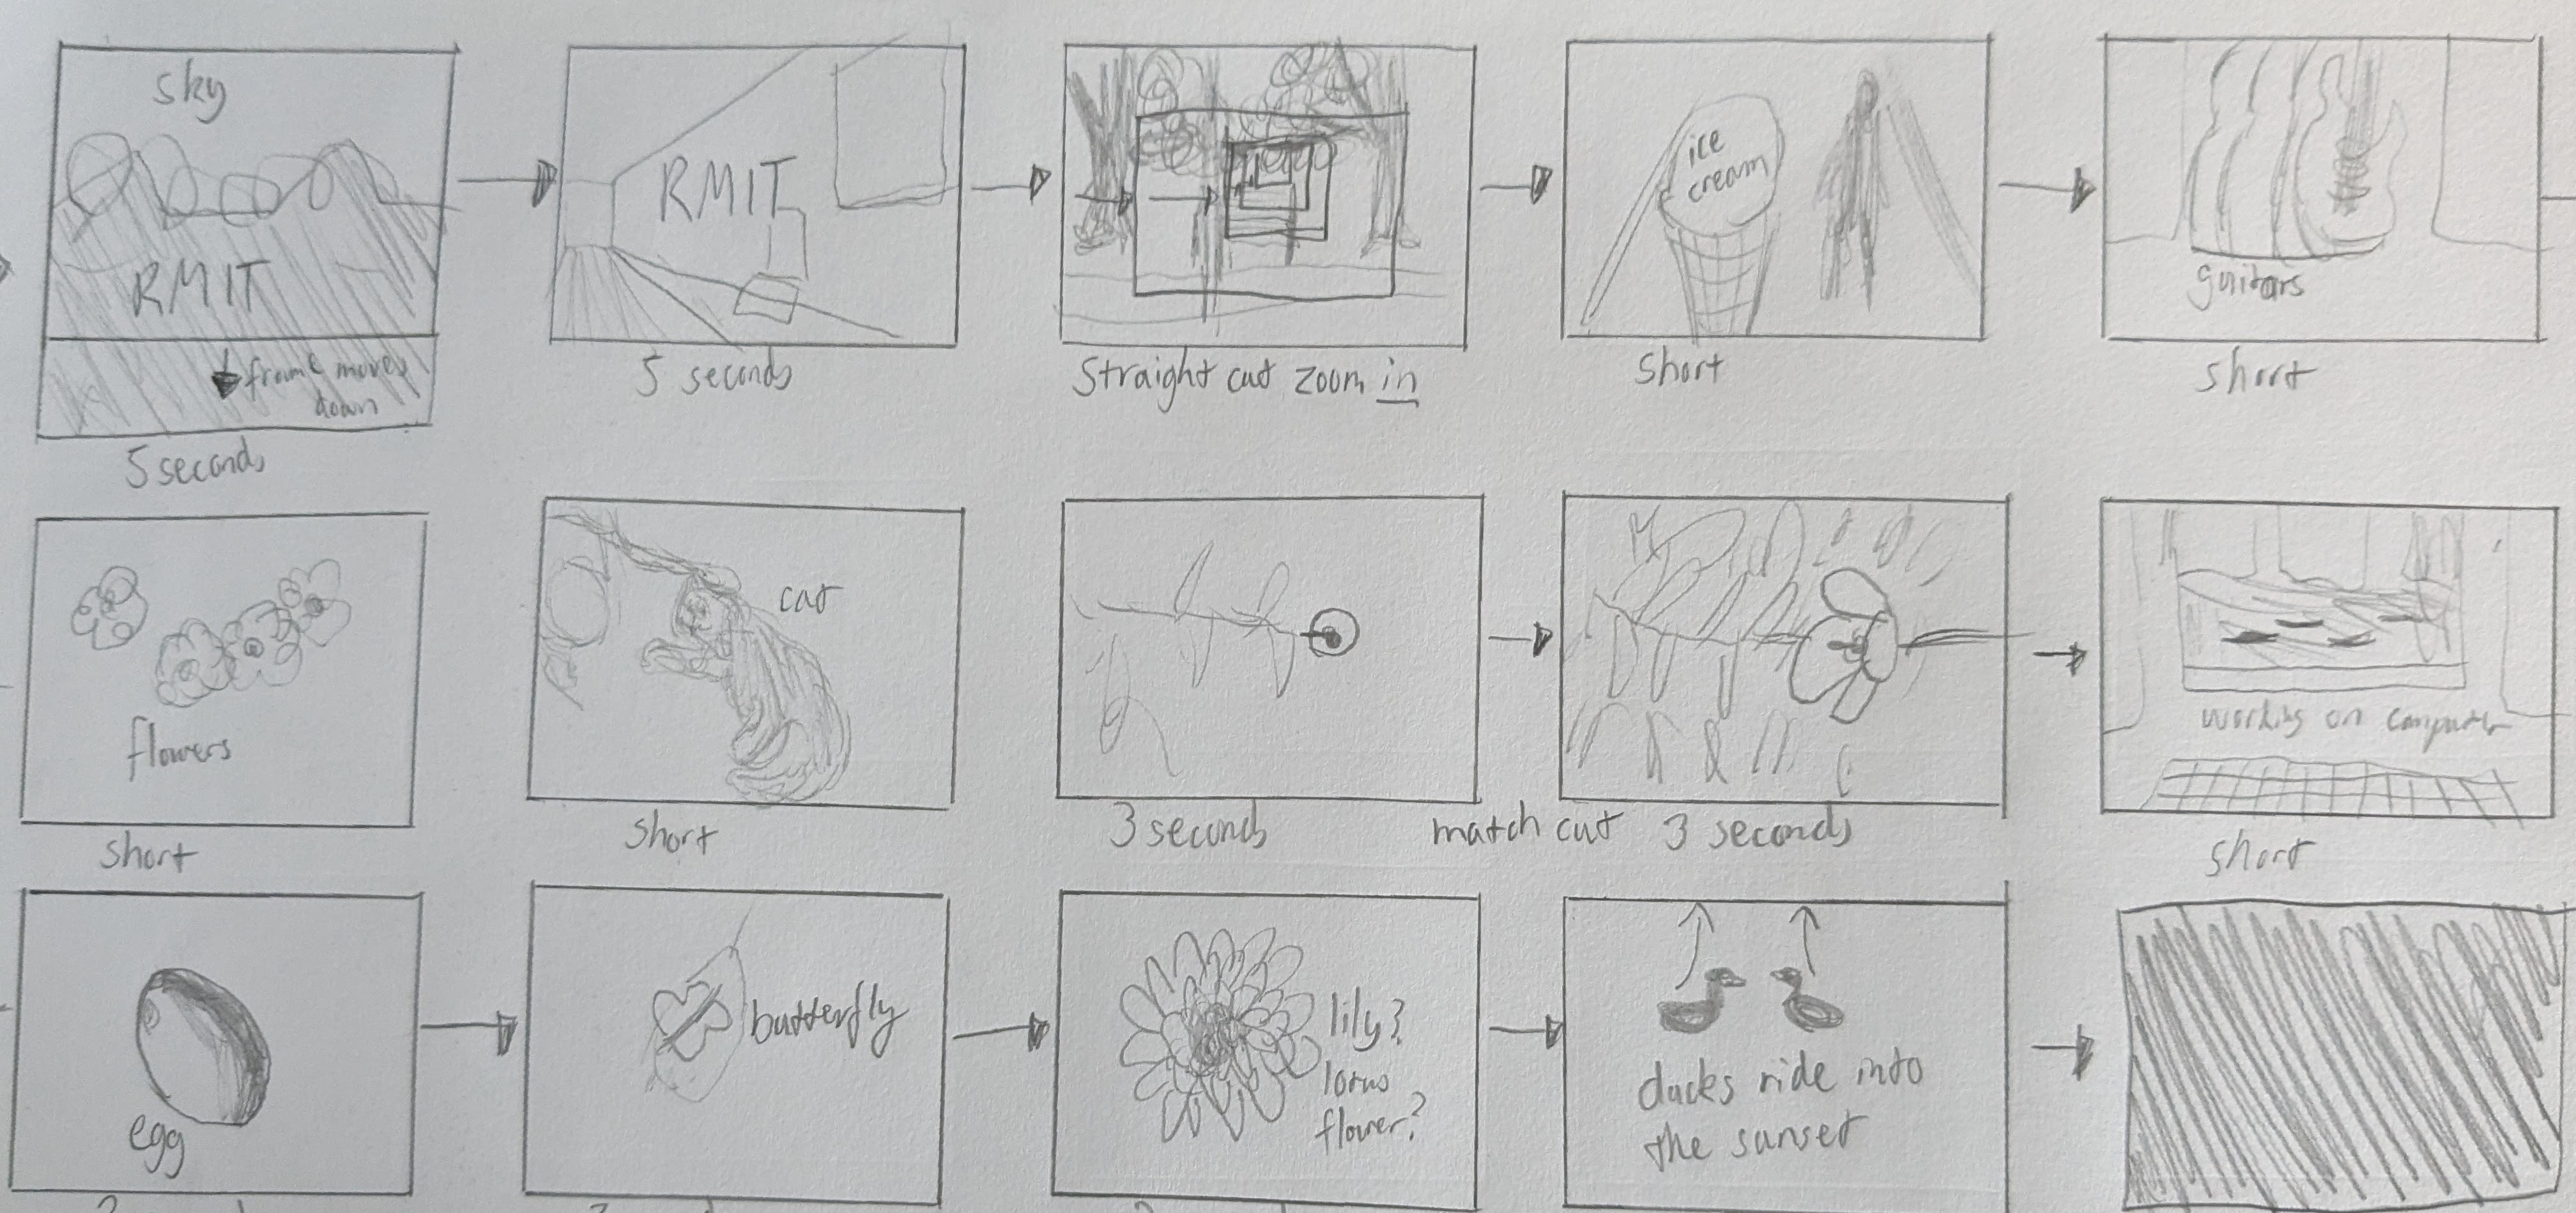 sky
RMIT
frame moves
down
5 seconds
RMIT
5 seconds
Straight cut zoom in
ice
cream
short
guitars
short
flowers
short
cat
short
3 seconds
match cut
3 seconds
working on computer
short
egg
butterfly
lily?
lotus
flower?
ducks ride into
the sunset